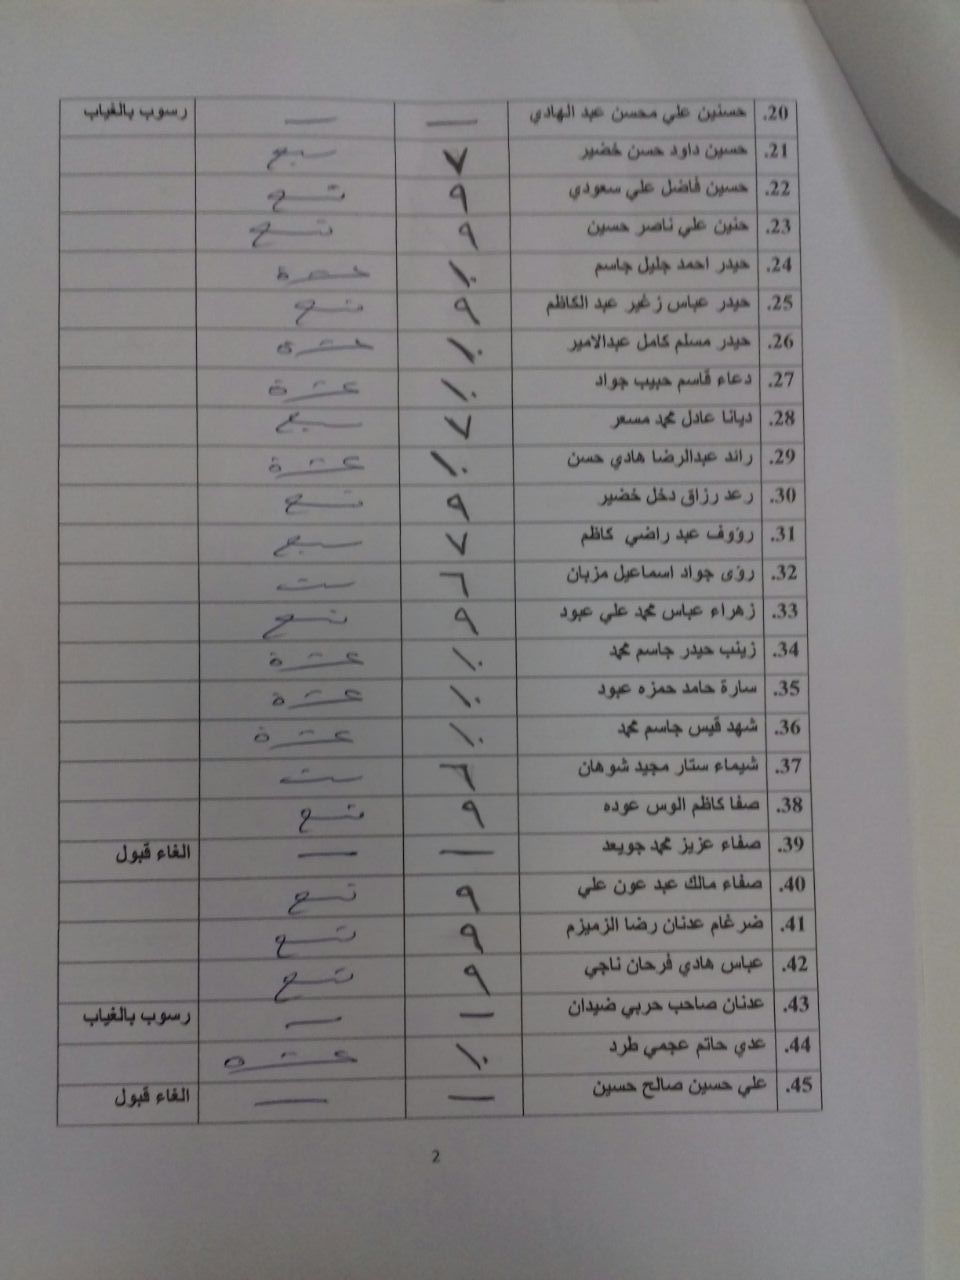 20. حسنين علي محسن عبد الهادي — — رسوب بالغياب
21. حسين داود حسن خضير ٧ سبع
22. حسين فاضل علي سعودي ٩ تسع
23. حنين علي ناصر حسين ٩ تسع
24. حيدر احمد جليل جاسم ١٠ عشرة
25. حيدر عباس زغير عبد الكاظم ٩ تسع
26. حيدر مسلم كامل عبدالامير ١٠ عشرة
27. دعاء قاسم حبيب جواد ١٠ عشرة
28. ديانا عادل محمد مسعر ٧ سبع
29. رائد عبدالرضا هادي حسن ١٠ عشرة
30. رعد رزاق دخل خضير ٩ تسع
31. رؤوف عبد راضي كاظم ٧ سبع
32. رؤى جواد اسماعيل مزبان ٦ ست
33. زهراء عباس محمد علي عبود ٩ تسع
34. زينب حيدر جاسم محمد ١٠ عشرة
35. سارة حامد حمزه عبود ١٠ عشرة
36. شهد قيس جاسم محمد ١٠ عشرة
37. شيماء ستار مجيد شوهان ٦ ست
38. صفا كاظم الوس عوده ٩ تسع
39. صفاء عزيز محمد جويعد — — الغاء قبول
40. صفاء مالك عبد عون علي ٩ تسع
41. ضرغام عدنان رضا الزميزم ٩ تسع
42. عباس هادي فرحان ناجي ٩ تسع
43. عدنان صاحب حربي ضيدان — — رسوب بالغياب
44. عدي حاتم عجمي طرد ١٠ عشره
45. علي حسين صالح حسين — — الغاء قبول
2